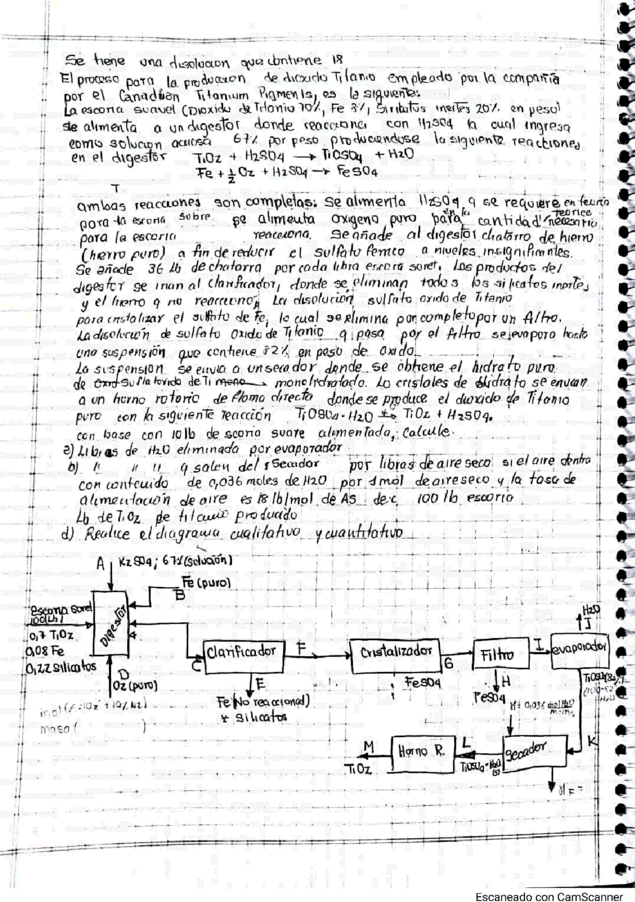 Se tiene una disolucion que contiene 18
El proceso para la produccion de dioxido Titanio empleado por la compañia
por el Canadian Titanium Pigments, es la siguiente:
La escoria suavel (Dioxido de Titanio 70%, Fe 8%, Silicatos inertes 20% en peso)
se alimenta a un digestor donde reacciona con H2SO4 la cual ingresa
como solucion acuosa 67% por peso produciendose la siguiente reacciones
en el digestor TiO2 + H2SO4 → TiOSO4 + H2O
Fe + 1/2 O2 + H2SO4 → FeSO4
T
ambas reacciones son completas. Se alimenta H2SO4 q se requiere en teoria
para la escoria sobre se alimenta oxigeno puro para la cantidad teorica necesario
para la escoria reacciona. Se añade al digestor chatarro de hierro
(hierro puro) a fin de reducir el sulfato ferrico a niveles insignificantes.
Se añade 36 lb de chatarra por cada libra escoria sorel. Los productos del
digestor se irian al clarificador, donde se eliminan todo s los silicatos inertes
y el hierro q no reacciono. La disolucion sulfato oxido de Titanio
para cristalizar el sulfato de Fe, lo cual se elimina por completo por un filtro.
La disolución de sulfato Oxido de Titanio q pasa por el filtro se evapora hasta
una suspensión que contiene 82% en peso de oxido
La suspension se envia a un secador donde se obtiene el hidrato puro
de sulfato oxido de Ti mono monohidratado. Lo cristales de hidrato se envian
a un horno rotorio de flama directo donde se produce el dioxido de Titanio
puro con la siguiente reacción TiOSO4·H2O → TiO2 + H2SO4.
con base con 10 lb de scoria suare alimentada, Calcule.
a) Libras de H2O eliminada por evaporador
b) " " " q salen del 1 secador por libras de aire seco si el aire dentra
con contenido de 0,036 moles de H2O por 1 mol de aire seco y la tasa de
alimentacion de aire es 18 lb/mol de AS de c 100 lb escoria
Lb de TiO2 de titanio producido
d) Realice el diagrama cualitativo y cuantitativo
A K2SO4; 67% (solución)
Fe (puro)
B
escoria Sorel
100 Lb
0,7 TiO2
0,08 Fe
0,22 silicatos
Digestor
D
O2 (puro)
C
Clarificador
F
Cristalizador
G
Filtro
I
evaporador
H2O
J
FeSO4
E
Fe (No reaccional)
y silicatos
H
FeSO4
K
M
TiO2
Horno R.
L
Secador
masa (